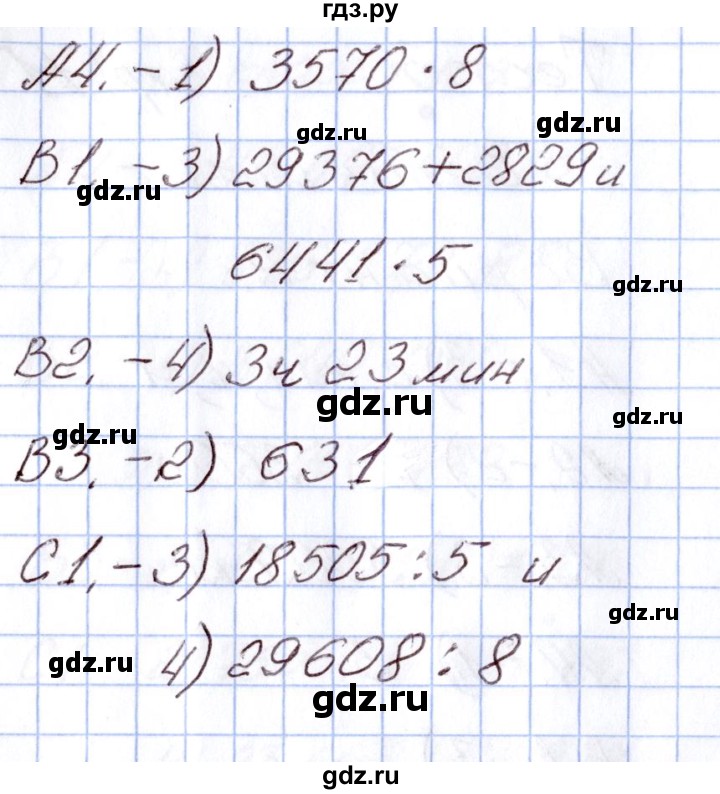 гдз.ру
А4. - 1) 3570 · 8
gdz.ru
gdz.ru
В1. - 3) 29376 + 2829 и
gdz.ru
6441 · 5
gdz.ru
В2. - 4) 3ч 23 мин
gdz.ru
gdz.ru
gdz.ru
В3. - 2) 631
С1. - 3) 18505 : 5 и
gdz.ru
4) 29608 : 8
gdz.ru
gdz.ru
gdz.ru